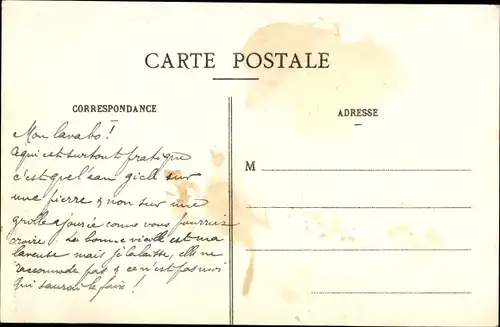 CARTE POSTALE
CORRESPONDANCE
ADRESSE
M
Mon lavabo!
ce qui est surtout pratique
c'est que l'eau gicle sur
une pierre & non sur une
grolle ajourée comme vous pourriez
croire. La bonne vieille est ma
laveuse mais je la laisse, elle ne
raccommode pas & ce n'est pas moi
qui saurai le faire!